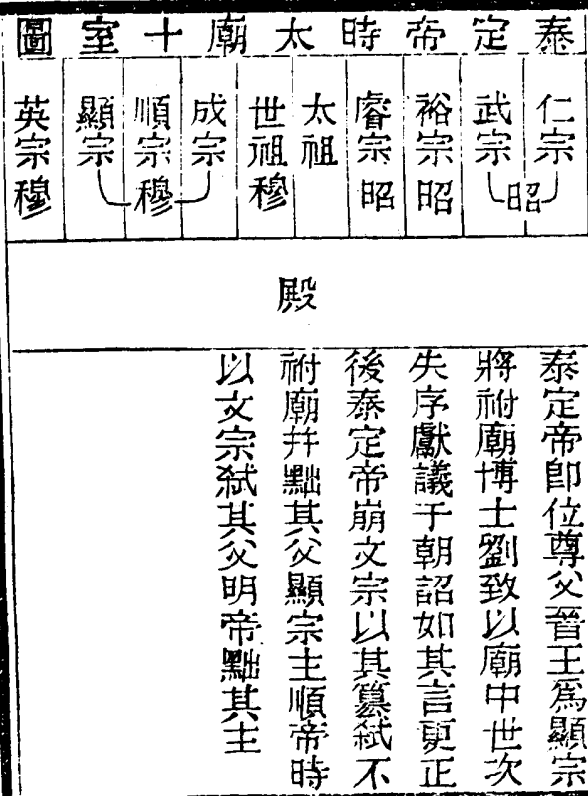 泰定帝時太廟十室圖
仁宗
昭
武宗
裕宗昭
睿宗昭
太祖
世祖穆
成宗
順宗穆
顯宗
英宗穆
殿
泰定帝卽位尊父晉王爲顯宗
將祔廟博士劉致以廟中世次
失序獻議于朝詔如其言更正
後泰定帝崩文宗以其篡弑不
祔廟幷黜其父顯宗主順帝時
以文宗弑其父明帝黜其主